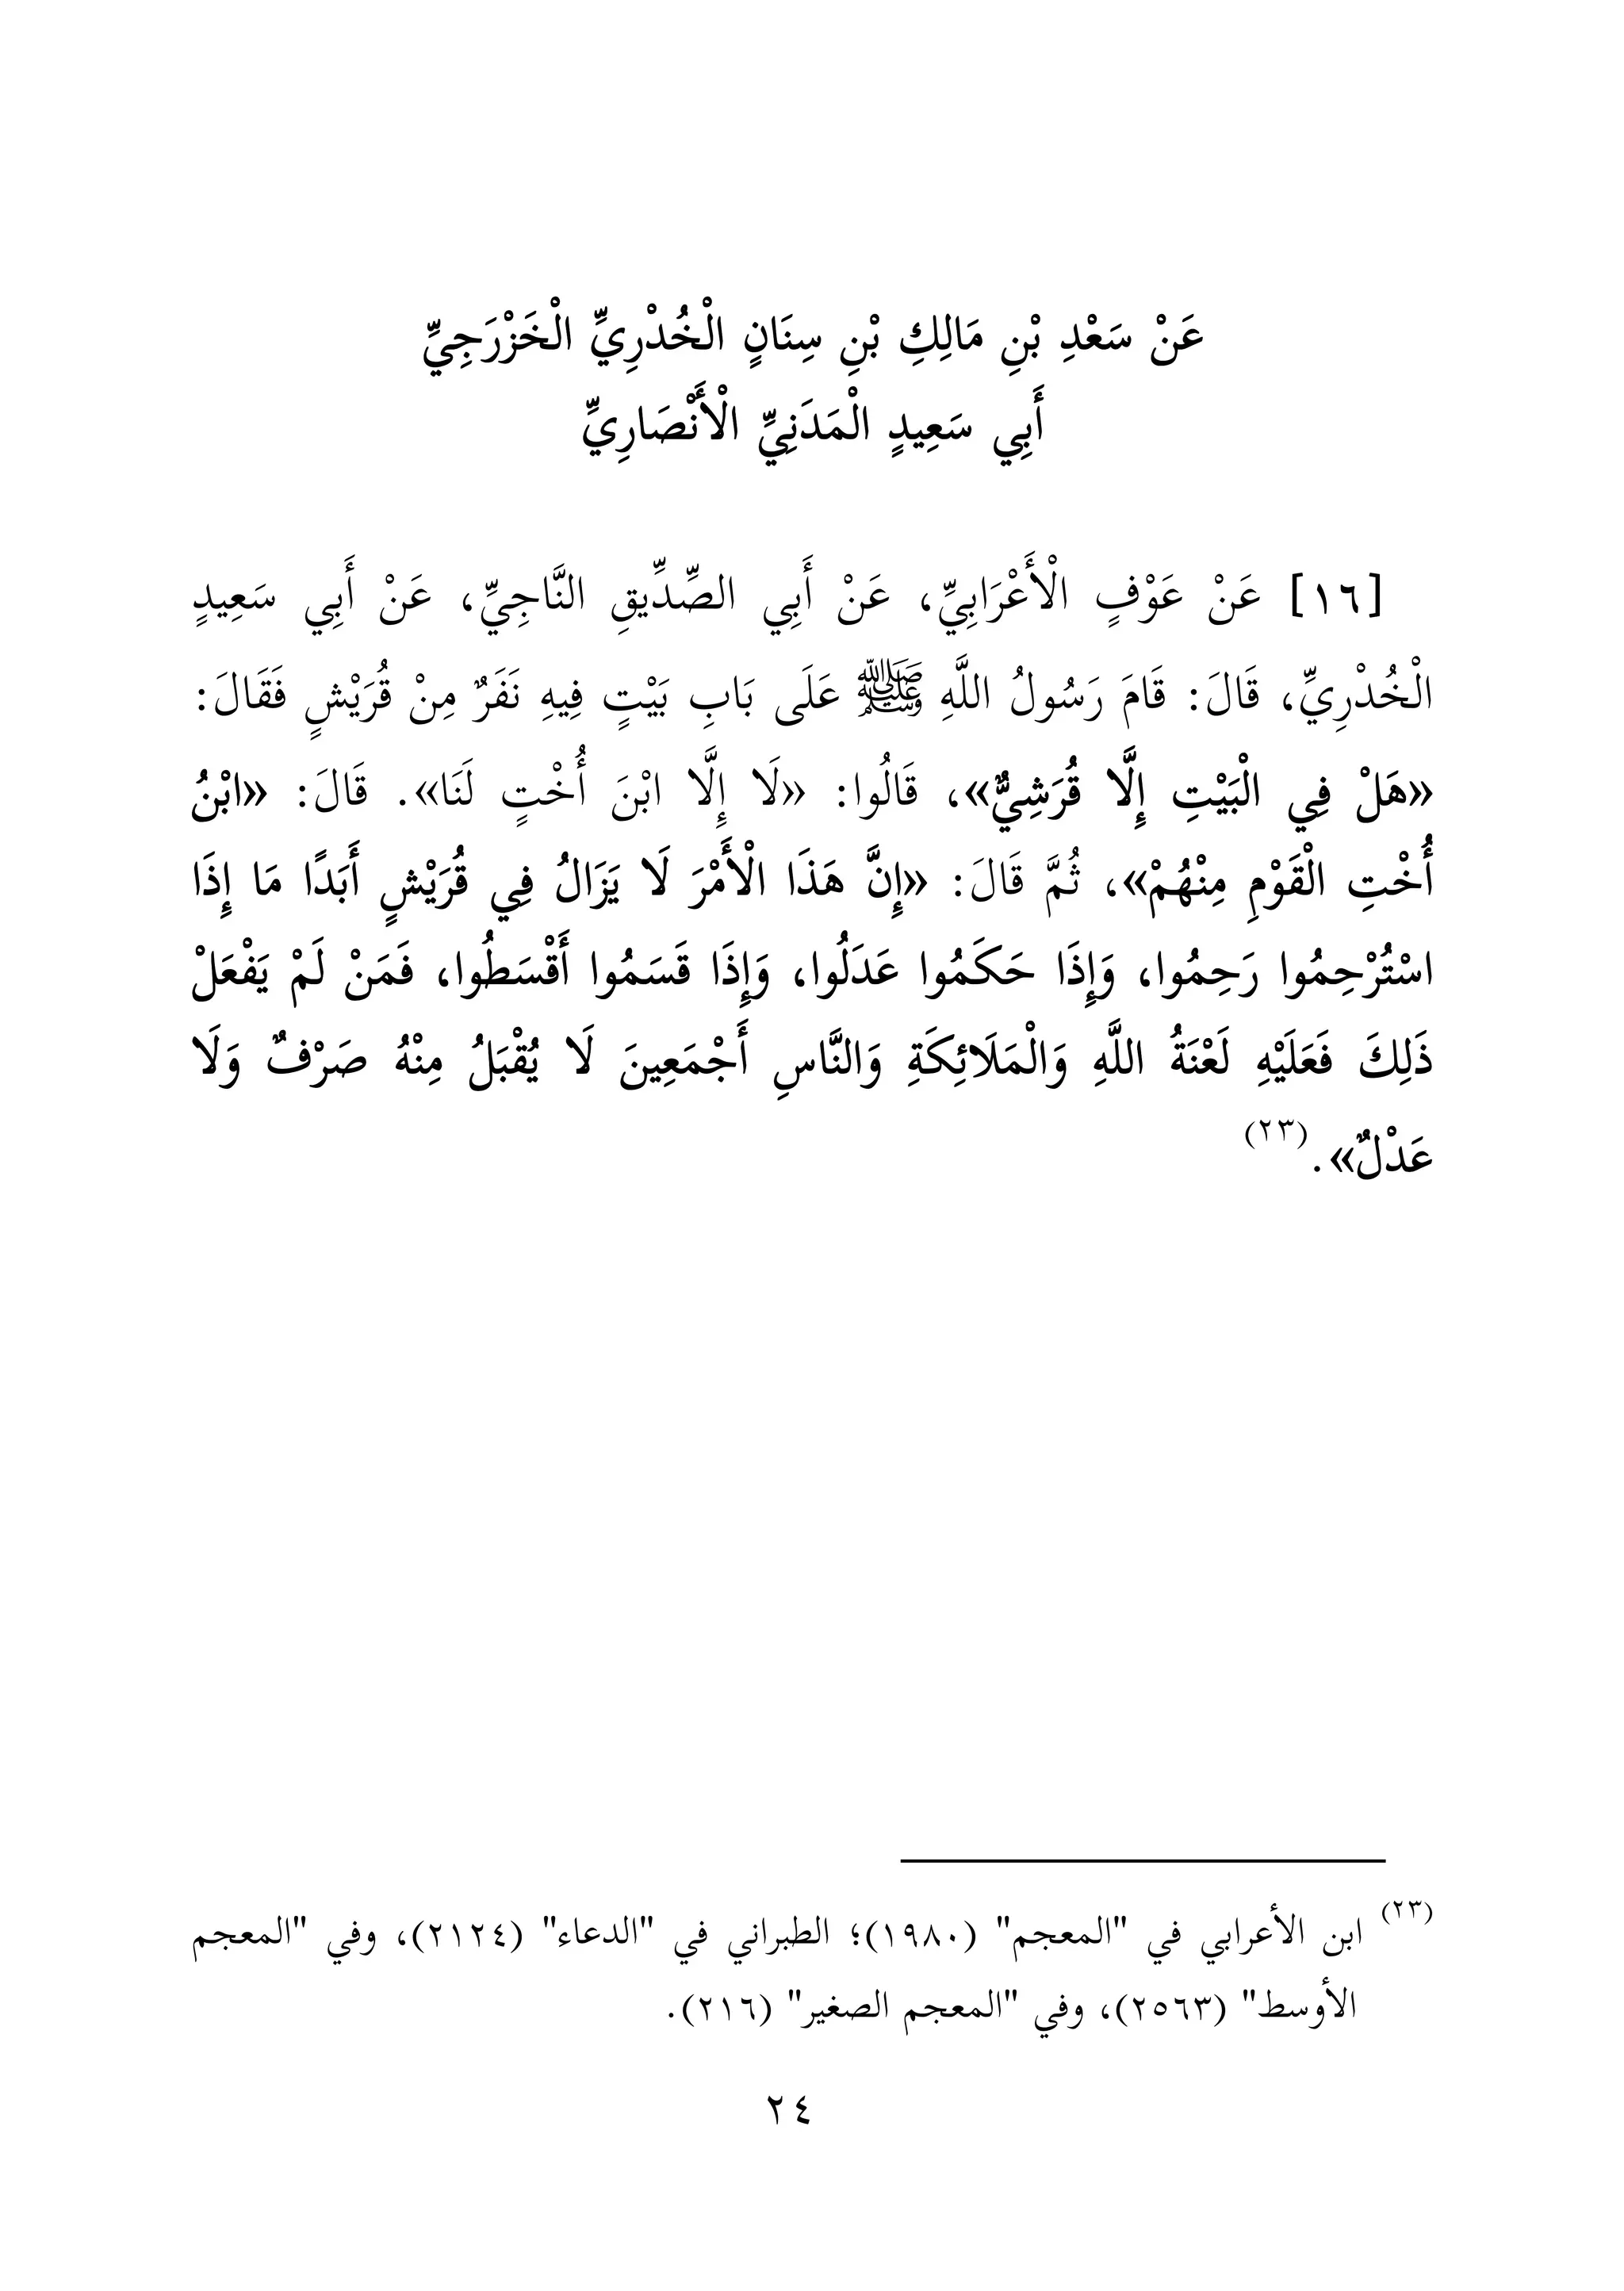 عَنْ سَعْدِ بْنِ مَالِكِ بْنِ سِنَانٍ الْخُدْرِيِّ الْخَزْرَجِيِّ
أَبِي سَعِيدٍ الْمَدَنِيِّ الْأَنْصَارِيِّ
[١٦] عَنْ عَوْفٍ الْأَعْرَابِيِّ، عَنْ أَبِي الصِّدِّيقِ النَّاجِيِّ، عَنْ أَبِي سَعِيدٍ
الْخُدْرِيِّ، قَالَ: قَامَ رَسُولُ اللَّهِ ﷺ عَلَى بَابِ بَيْتٍ فِيهِ نَفَرٌ مِنْ قُرَيْشٍ فَقَالَ:
«هَلْ فِي الْبَيْتِ إِلَّا قُرَشِيٌّ»، قَالُوا: «لَا إِلَّا ابْنَ أُخْتٍ لَنَا». قَالَ: «ابْنُ
أُخْتِ الْقَوْمِ مِنْهُمْ»، ثُمَّ قَالَ: «إِنَّ هَذَا الْأَمْرَ لَا يَزَالُ فِي قُرَيْشٍ أَبَدًا مَا إِذَا
اسْتُرْحِمُوا رَحِمُوا، وَإِذَا حَكَمُوا عَدَلُوا، وَإِذَا قَسَمُوا أَقْسَطُوا، فَمَنْ لَمْ يَفْعَلْ
ذَلِكَ فَعَلَيْهِ لَعْنَةُ اللَّهِ وَالْمَلَائِكَةِ وَالنَّاسِ أَجْمَعِينَ لَا يُقْبَلُ مِنْهُ صَرْفٌ وَلَا
عَدْلٌ».(٢٣)
(٢٣) ابن الأعرابي في "المعجم" (١٩٨٠)؛ الطبراني في "الدعاء" (٢١٢٤)، وفي "المعجم
الأوسط" (٢٥٦٣)، وفي "المعجم الصغير" (٢١٦).
٢٤